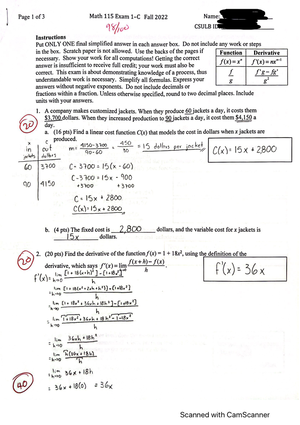 Page 1 of 3
Math 115 Exam 1-C Fall 2022
Name:
98/100
CSULB ID
Instructions
Put ONLY ONE final simplified answer in each answer box. Do not include any work or steps
in the box. Scratch paper is not allowed. Use the backs of the pages if
necessary. Show your work for all computations! Getting the correct
answer is insufficient to receive full credit; your work must also be
correct. This exam is about demonstrating knowledge of a process, thus
understandable work is necessary. Simplify all formulas. Express your
answers without negative exponents. Do not include decimals or
fractions within a fraction. Unless otherwise specified, round to two decimal places. Include
units with your answers.
Function Derivative
f(x) = xⁿ f'(x) = nxⁿ⁻¹
f/g
1. A company makes customized jackets. When they produce 60 jackets a day, it costs them
$3,700 dollars. When they increased production to 90 jackets a day, it cost $4,150 a
day.
20
a. (16 pts) Find a linear cost function C(x) that models the cost in dollars when x jackets are
produced.
x c
in out
jackets dollars
m = 4150-3700 / 90-60 = 450 / 30 = 15 dollars per jacket
C(x) = 15x + 2800
60 3700
C - 3700 = 15(x - 60)
C - 3700 = 15x - 900
+3700 +3700
90 4150
C = 15x + 2800
C(x) = 15x + 2800
b. (4 pts) The fixed cost is 2,800 dollars, and the variable cost for x jackets is
15x dollars.
20
2. (20 pts) Find the derivative of the function f(x) = 1 + 18x², using the definition of the
derivative, which says f'(x) = lim h→0 f(x+h) - f(x) / h
f'(x) = 36x
f'(x) = lim h→0 [1 + 18(x+h)²] - [1+18x²] / h
= lim h→0 [1 + 18(x²+2xh+h²)] - [1+18x²] / h
= lim h→0 [1 + 18x² + 36xh + 18h²] - [1+18x²] / h
= lim h→0 1 + 18x² + 36xh + 18h² - 1 - 18x² / h
= lim h→0 36xh + 18h² / h
= lim h→0 h(36x + 18h) / h
= lim h→0 36x + 18h
= 36x + 18(0) = 36x
40
Scanned with CamScanner